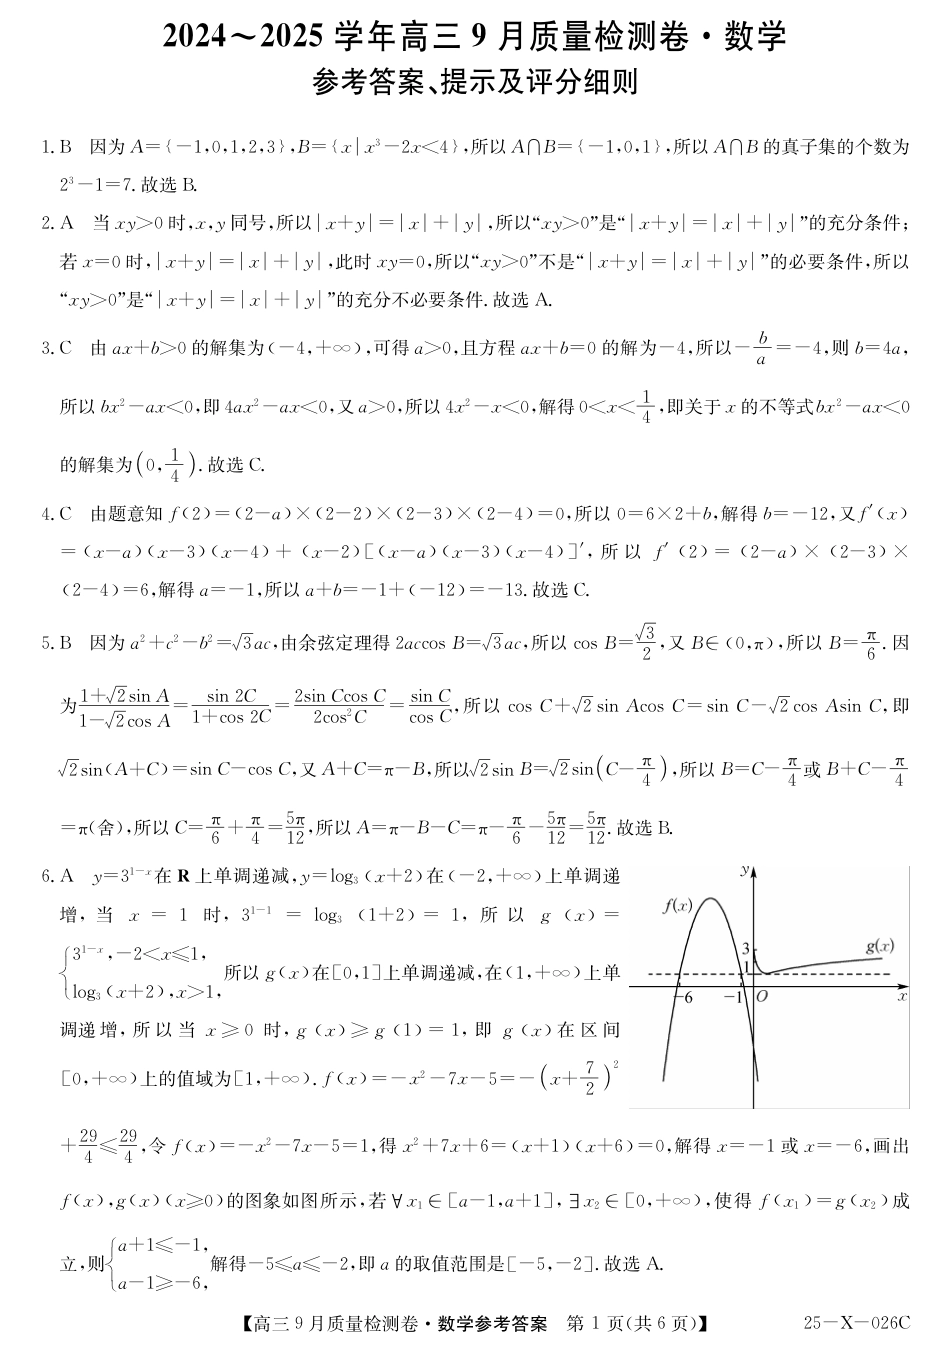 2024～2025 学年高三 9 月质量检测卷·数学
参考答案、提示及评分细则
1. B 因为 A={-1,0,1,2,3},B={x|x³-2x<4},所以 A∩B={-1,0,1},所以 A∩B 的真子集的个数为
2³-1=7. 故选 B.
2. A 当 xy>0 时,x,y 同号,所以|x+y|=|x|+|y|,所以“xy>0”是“|x+y|=|x|+|y|”的充分条件;
若 x=0 时,|x+y|=|x|+|y|,此时 xy=0,所以“xy>0”不是“|x+y|=|x|+|y|”的必要条件,所以
“xy>0”是“|x+y|=|x|+|y|”的充分不必要条件. 故选 A.
3. C 由 ax+b>0 的解集为(-4,+∞),可得 a>0,且方程 ax+b=0 的解为-4,所以-b/a=-4,则 b=4a,
所以 bx²-ax<0,即 4ax²-ax<0,又 a>0,所以 4x²-x<0,解得 0<x<1/4,即关于 x 的不等式 bx²-ax<0
的解集为(0,1/4). 故选 C.
4. C 由题意知 f(2)=(2-a)×(2-2)×(2-3)×(2-4)=0,所以 0=6×2+b,解得 b=-12,又 f′(x)
=(x-a)(x-3)(x-4)+(x-2)[(x-a)(x-3)(x-4)]′,所以 f′(2)=(2-a)×(2-3)×
(2-4)=6,解得 a=-1,所以 a+b=-1+(-12)=-13. 故选 C.
5. B 因为 a²+c²-b²=√3ac,由余弦定理得 2accos B=√3ac,所以 cos B=√3/2,又 B∈(0,π),所以 B=π/6. 因
为(1+√2sin A)/(1-√2cos A)=sin 2C/(1+cos 2C)=2sin Ccos C/2cos²C=sin C/cos C,所以 cos C+√2 sin Acos C=sin C-√2 cos Asin C,即
√2sin(A+C)=sin C-cos C,又 A+C=π-B,所以√2sin B=√2sin(C-π/4),所以 B=C-π/4或 B+C-π/4
=π(舍),所以 C=π/6+π/4=5π/12,所以 A=π-B-C=π-π/6-5π/12=5π/12. 故选 B.
6. A y=3¹⁻ˣ在 R 上单调递减,y=log₃(x+2)在(-2,+∞)上单调递
增,当 x=1 时,3¹⁻¹=log₃(1+2)=1,所以 g(x)=
{3¹⁻ˣ,-2<x≤1,
log₃(x+2),x>1, 所以 g(x)在[0,1]上单调递减,在(1,+∞)上单
调递增,所以当 x≥0 时,g(x)≥g(1)=1,即 g(x)在区间
[0,+∞)上的值域为[1,+∞). f(x)=-x²-7x-5=-(x+7/2)²
+29/4≤29/4,令 f(x)=-x²-7x-5=1,得 x²+7x+6=(x+1)(x+6)=0,解得 x=-1 或 x=-6,画出
f(x),g(x)(x≥0)的图象如图所示,若∀x₁∈[a-1,a+1],∃x₂∈[0,+∞),使得 f(x₁)=g(x₂)成
立,则{a+1≤-1,
a-1≥-6, 解得-5≤a≤-2,即 a 的取值范围是[-5,-2]. 故选 A.
y
f(x)
3
g(x)
1
-6
-1
O
x
【高三 9 月质量检测卷·数学参考答案 第 1 页(共 6 页)】
25-X-026C